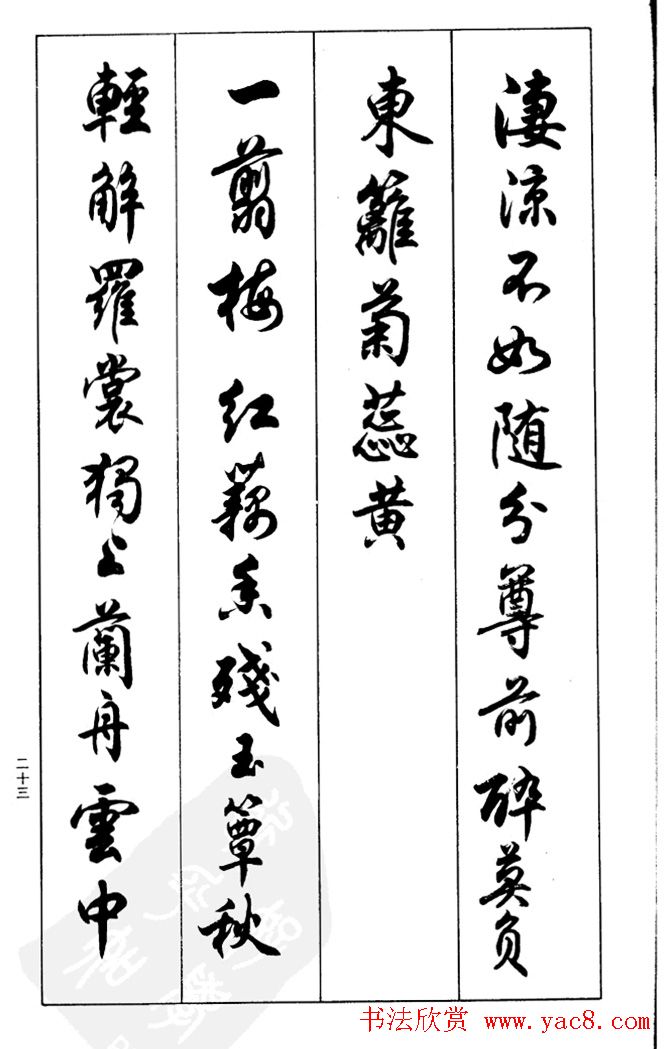 淒涼不如随分尊前醉莫负
東籬菊蕊黄
一翦梅 红藕香殘玉簟秋
輕解羅裳獨上蘭舟雲中
二十三
书法欣赏 www.yac8.com